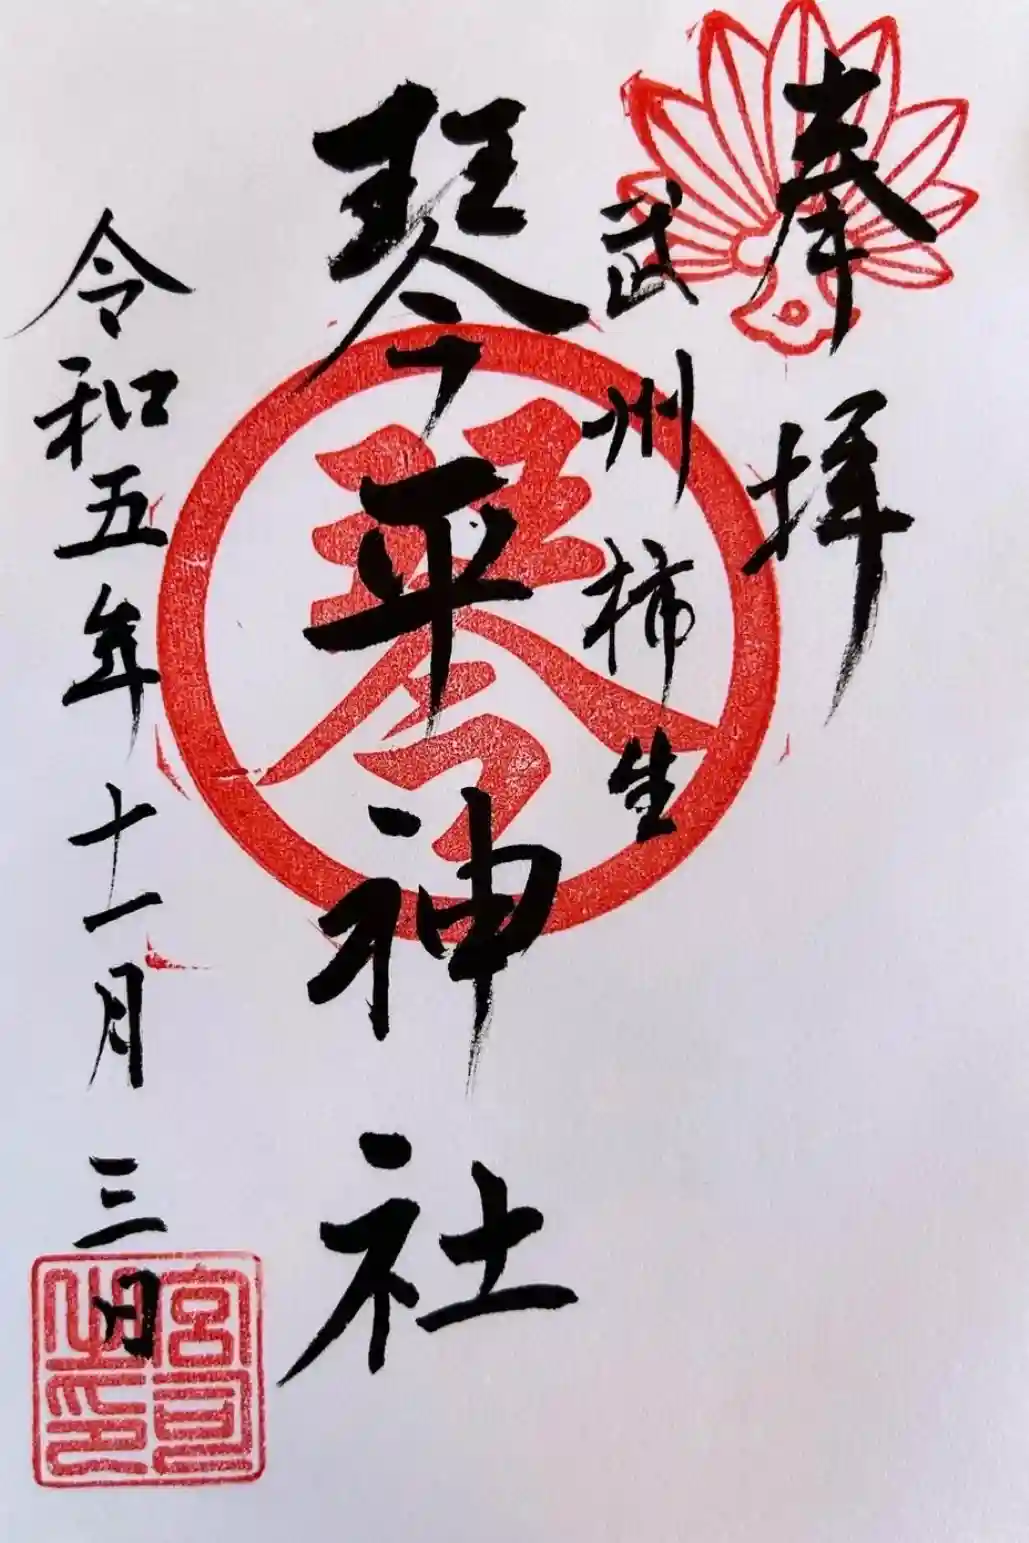 奉拝
武州柿生
琴平神社
琴
令和五年十一月三日
宮司
之印